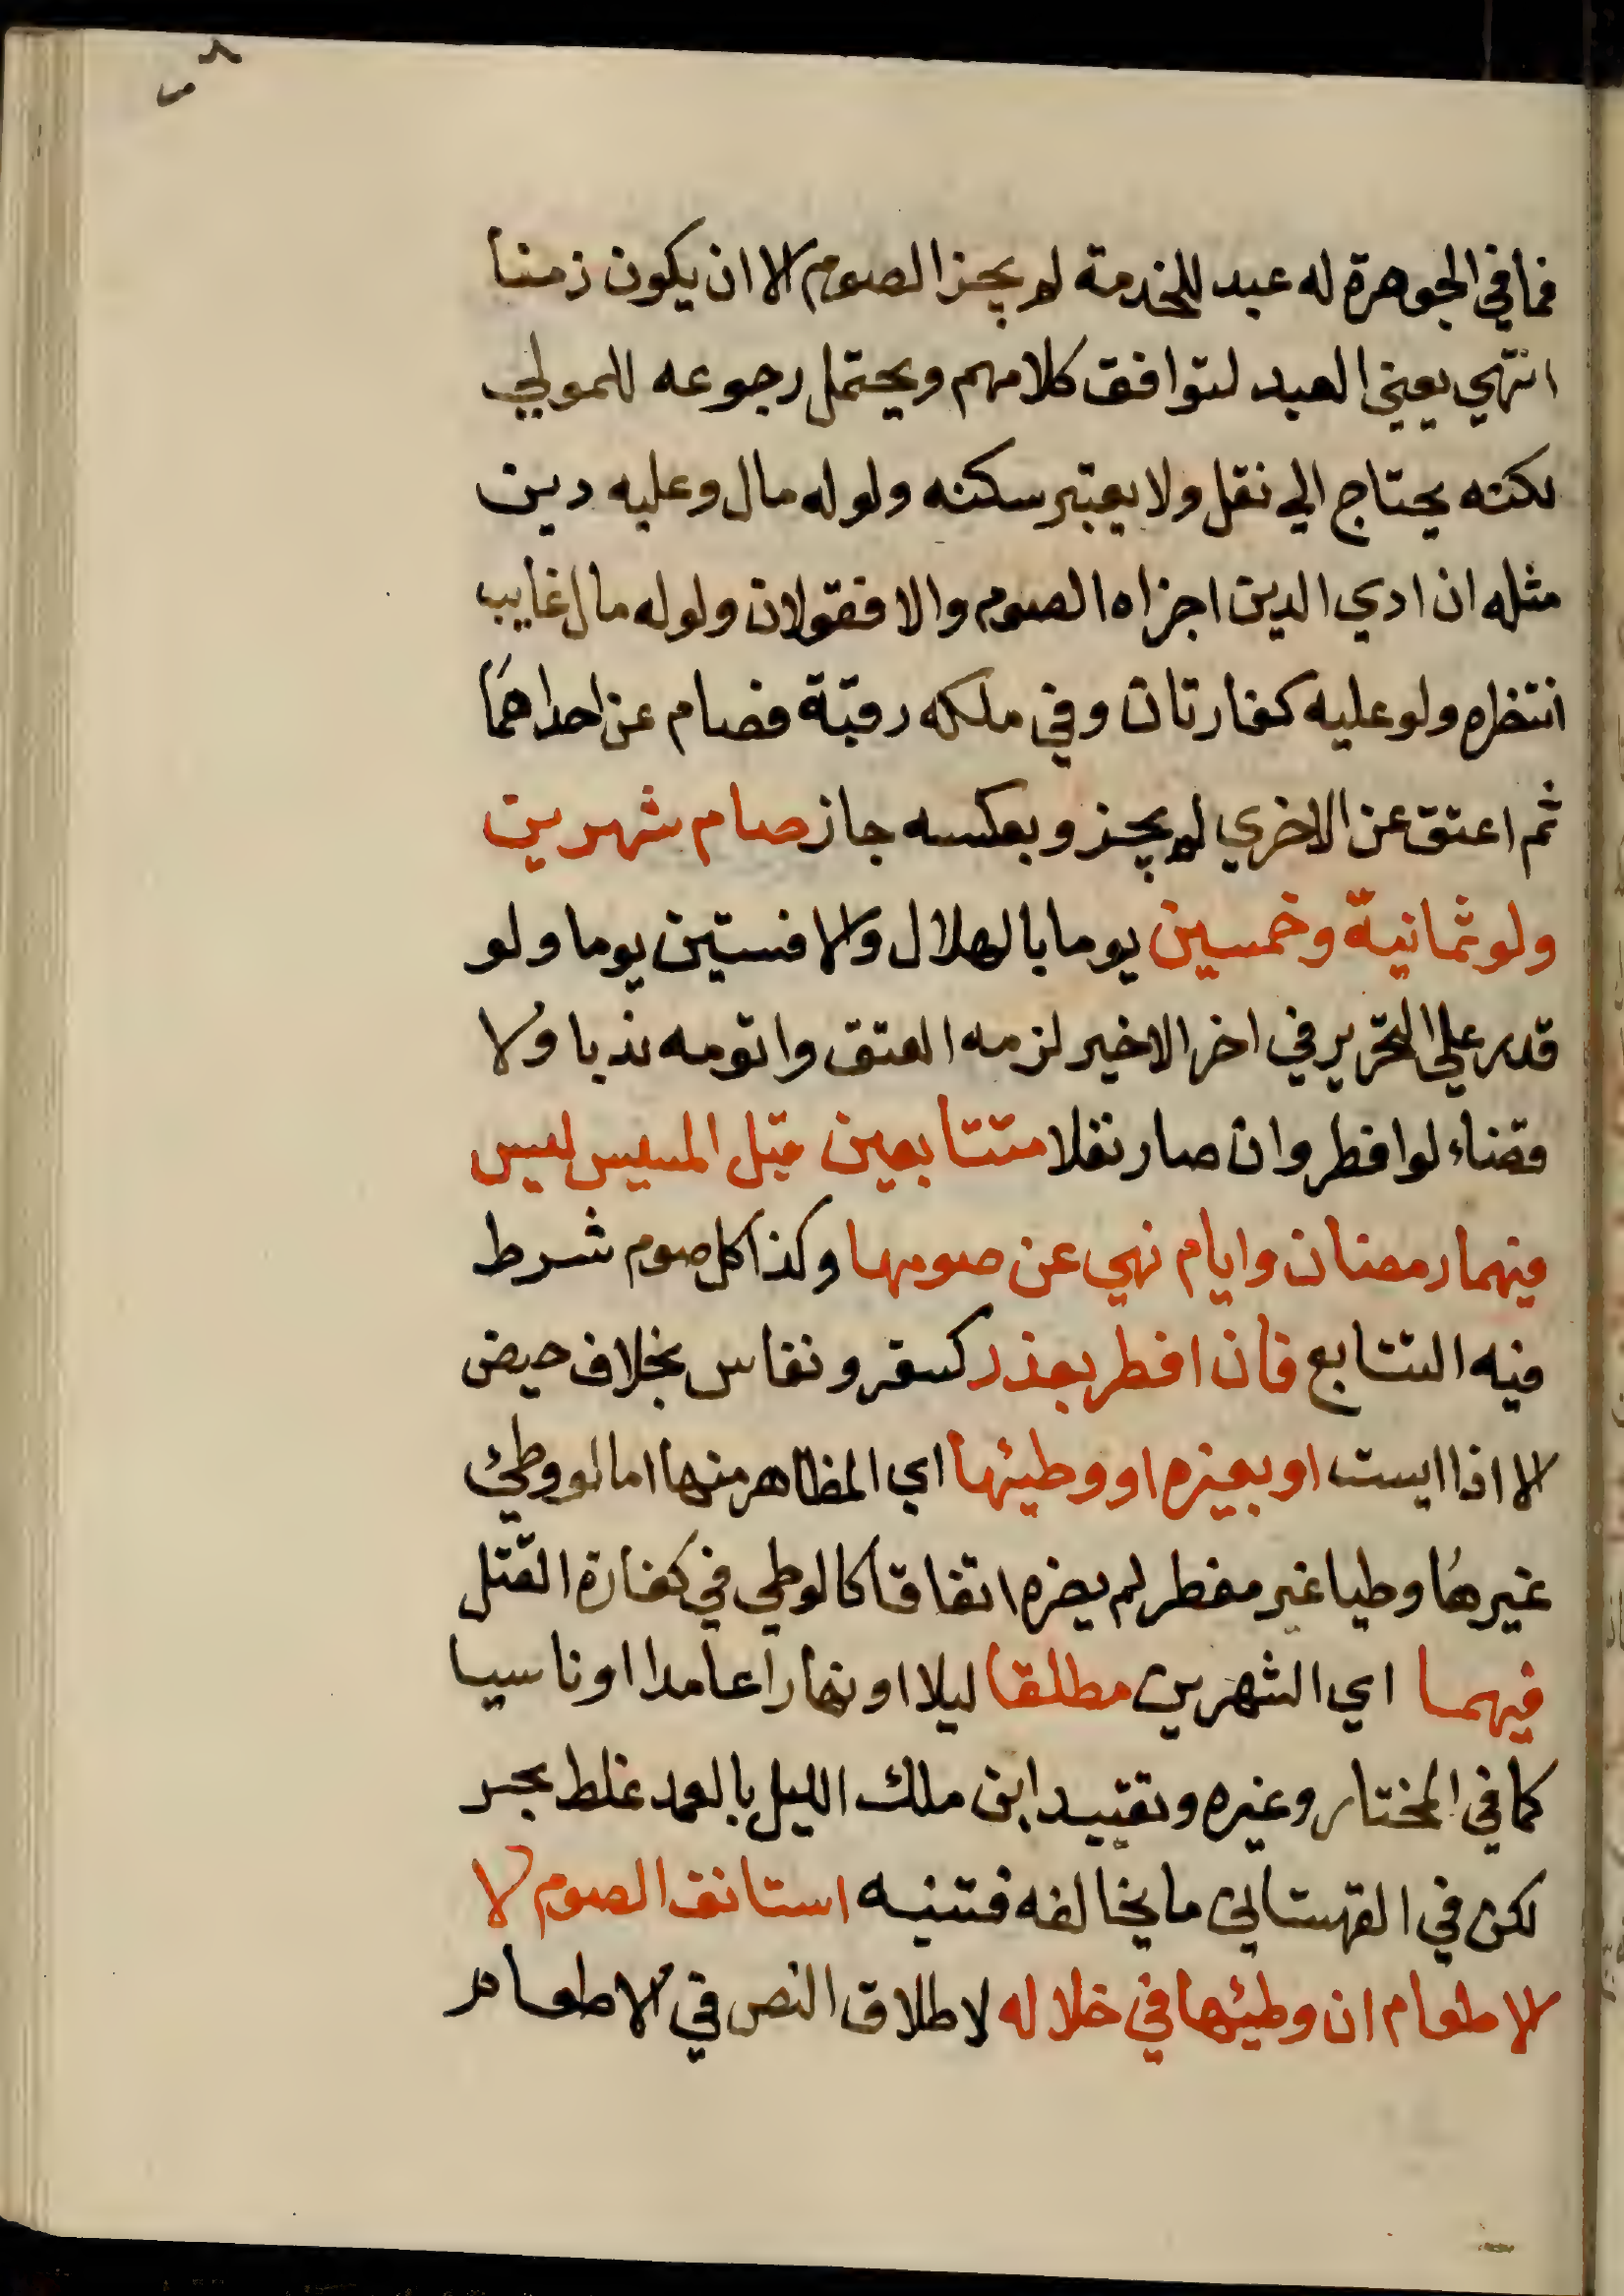 فما في الجوهرة له عبد للخدمة لم يجز الصوم الا ان يكون زمنا
انتهي يعني العبد لتوافق كلامهم ويحتمل رجوعه للمولي
لكنه يحتاج الي نقل ولا يعتبر سكنه ولو له مال وعليه دين
مثله ان ادي الدين اجزاه الصوم والا فقولان ولو له مال غايب
انتظره ولو عليه كفارتان وفي ملكه رقبة فصام عن احداهما
ثم اعتق عن الاخري لم يجز وبعكسه جاز صام شهرين
ولو ثمانية وخمسين يوما بالهلال والا فستين يوما ولو
قدر علي التحرير في اخر الاخير لزمه العتق واتم يومه ندبا ولا
قضاء لو افطر وان صار نفلا متتابعين قبل المسيس ليس
فيهما رمضان وايام نهي عن صومها وكذا كل صوم شرط
فيه التتابع فان افطر بعذر كسفر ونفاس بخلاف حيض
الا اذا ايست او بغيره او وطيئها اي المظاهر منها اما لو وطئ
غيرها وطيا غير مفطر لم يضره اتفاقا كالوطي في كفارة القتل
فيهما اي الشهرين مطلقا ليلا او نهارا عامدا او ناسيا
كما في المختار وغيره وتقييد ابن ملك الليل بالعمد غلط بحر
لكن في القهستاني ما يخالفه فتنبه استانف الصوم لا
الاطعام ان وطيئها في خلاله لاطلاق النص في الاطعام